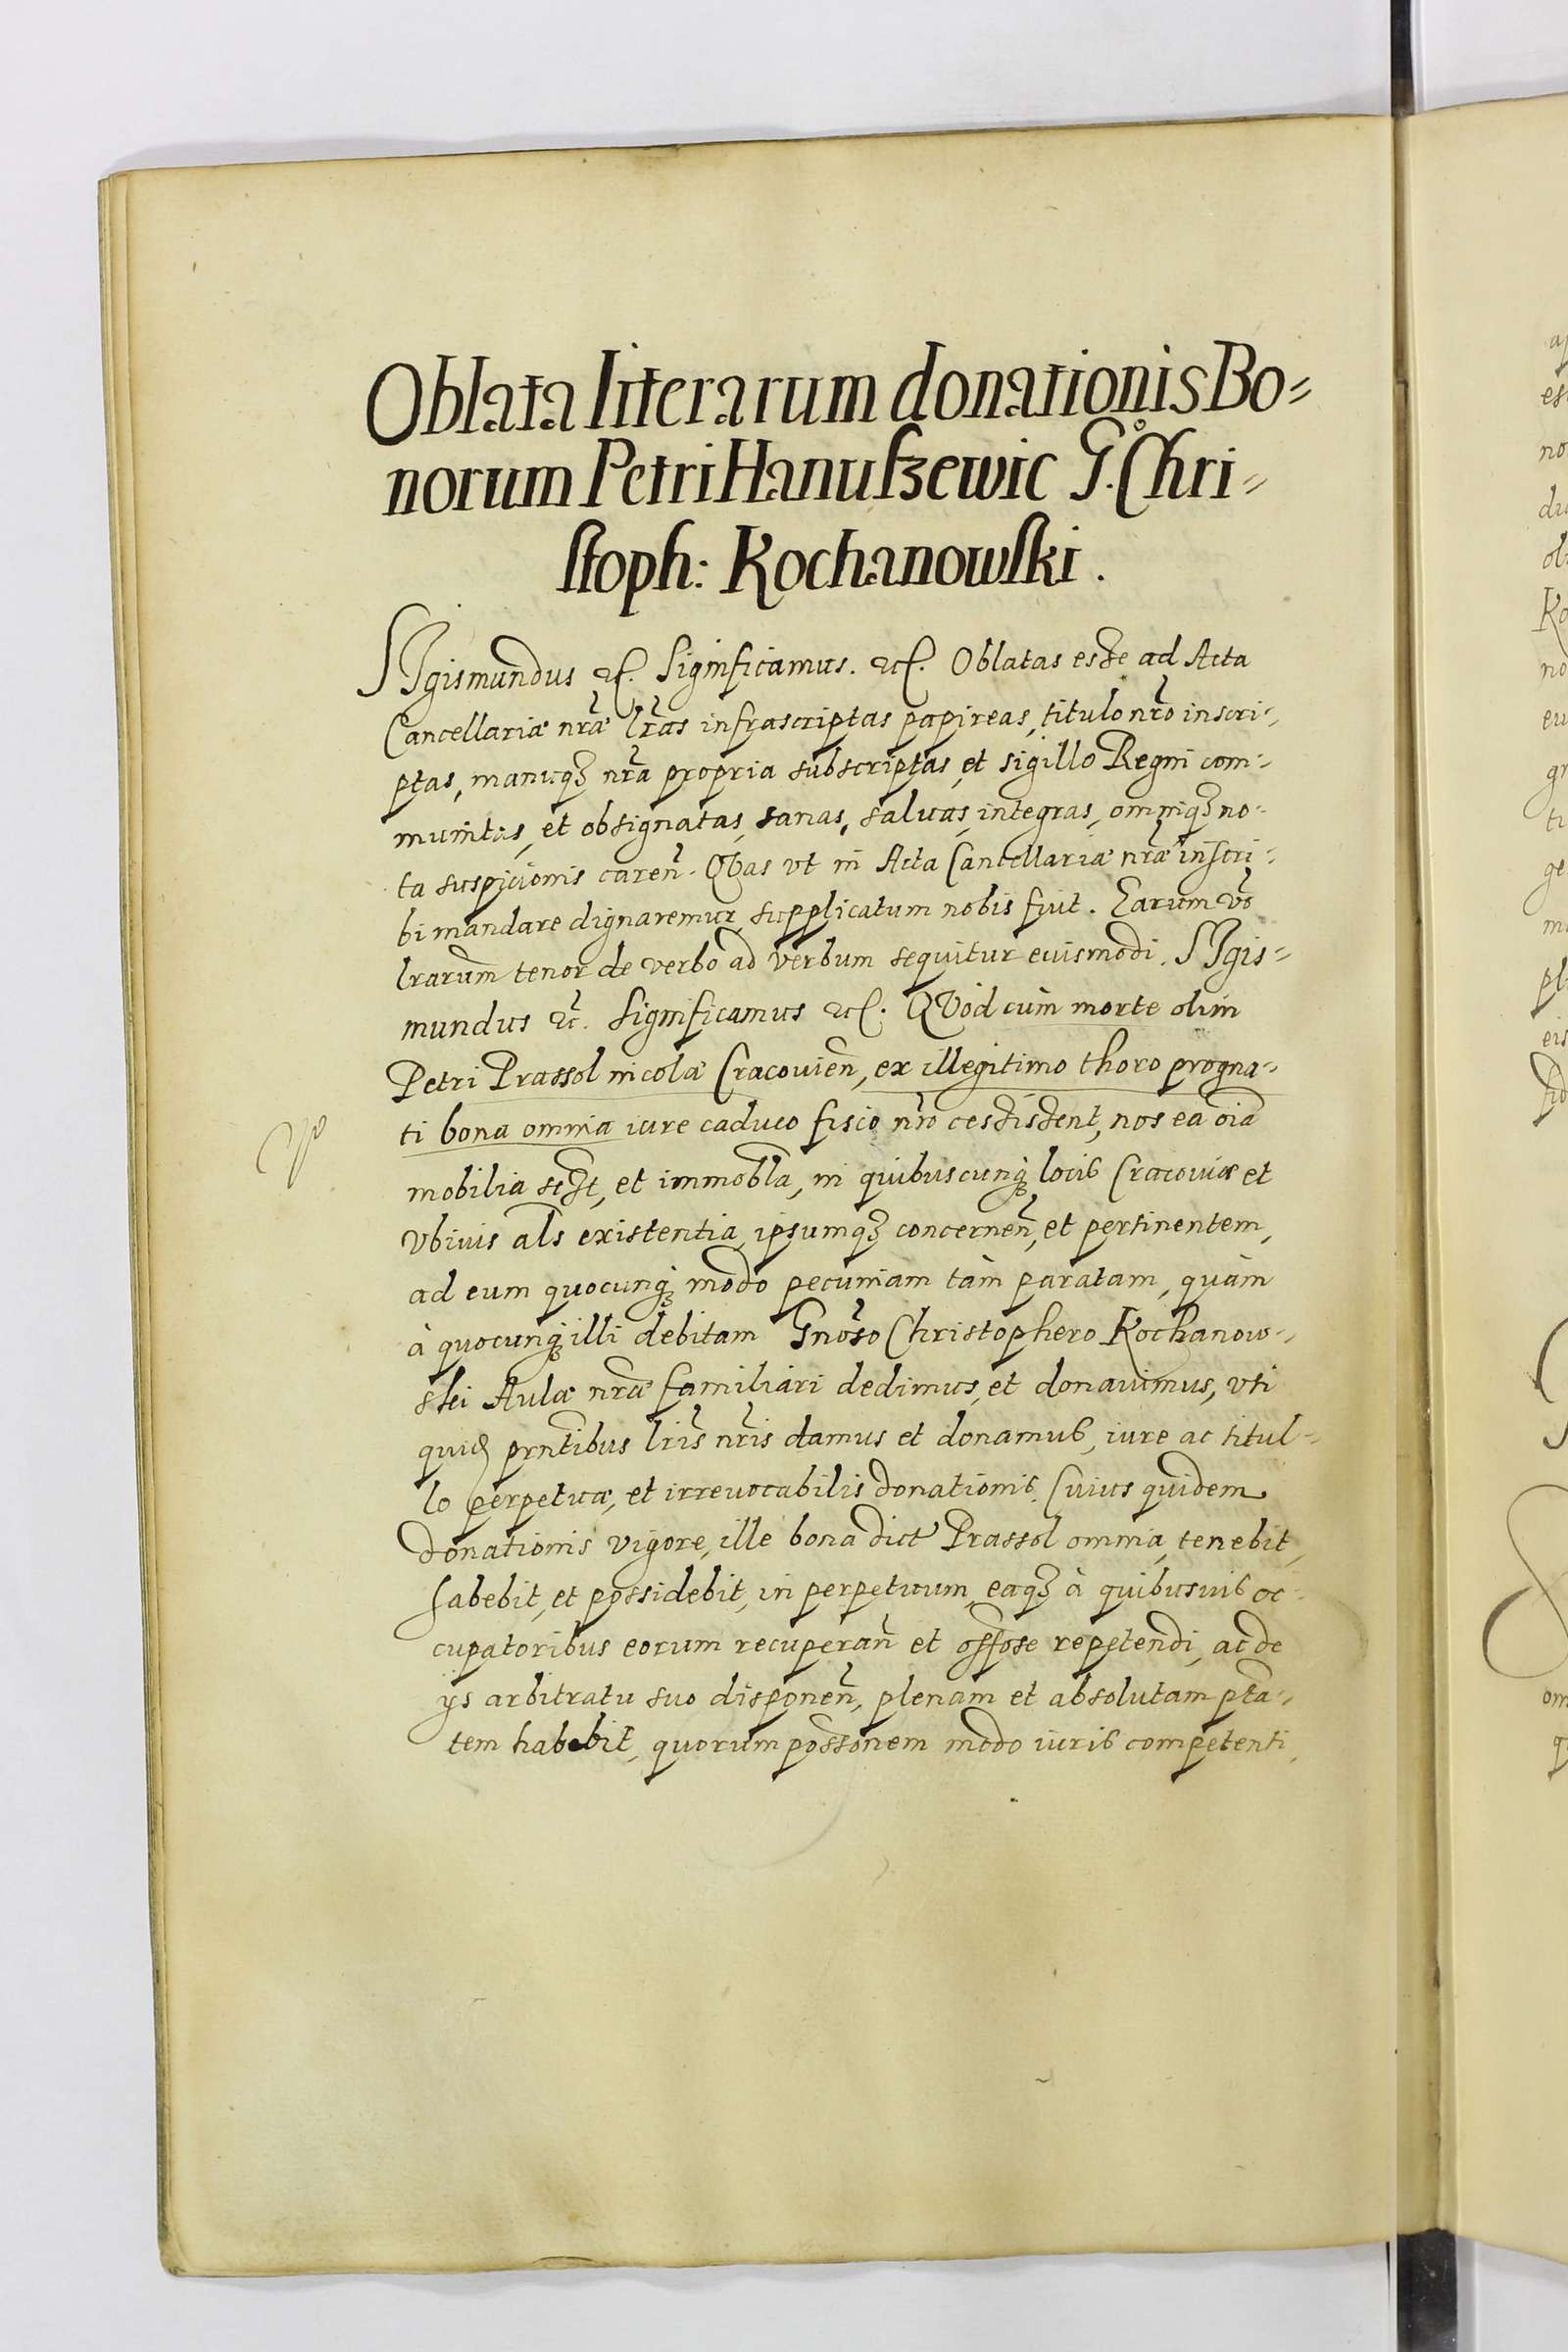 Oblata literarum donationis Bo=
norum Petri Hanufzewic G. Chri=
stoph: Kochanowski.
SIgismundus etc. Significamus. etc. Oblatas esse ad Acta
Cancellariæ nrae lras infrascriptas papireas, titulo nro inscri=
ptas, manuq3 nra propria subscriptas, et sigillo Regni com=
munitas, et obsignatas, sanas, saluas, integras, omniq3 no=
ta suspicionis caren. Qbas vt in Acta Cancellariæ nræ inscri=
bi mandare dignaremur, supplicatum nobis fuit. Earum vo
lrarum tenor de verbo ad verbum sequitur euismodi. SIgis=
mundus etc. Significamus etc. QVòd cùm morte olim
Petri Prassol incolæ Cracouien, ex illegitimo thoro progna=
ti bona omnia iure caduco fisco nro cessissent, nos ea oia
mobilia sese, et immobla, in quibuscunq3 locis Cracouiæ et
vbiuis als existentia, ipsumq3 concernen, et pertinentem,
ad eum quocunq3 modo pecuniam tàm paratam, quàm
à quocunq3 illi debitam Gnoso Christophero Kochanow=
ski Aulæ nræ familiari dedimus, et donauimus, vti
quid prntibus lris nris damus et donamus, iure ac titul=
lo perpetuæ, et irreuocabilis donationis. Cuius quidem
donationis vigore, ille bona dict Prassol omnia, tenebit,
habebit, et possidebit, in perpetuum, eaq3 à quibusuis oc=
cupatoribus eorum recuperan et repetendi, ac de
ijs arbitratu suo disponen, plenam et absolutam pta=
tem habebit, quorum possonem modo iuris competenti,
ap
es
no
du
Ko
no
eu
gr
ti
ge
pl
eis
om